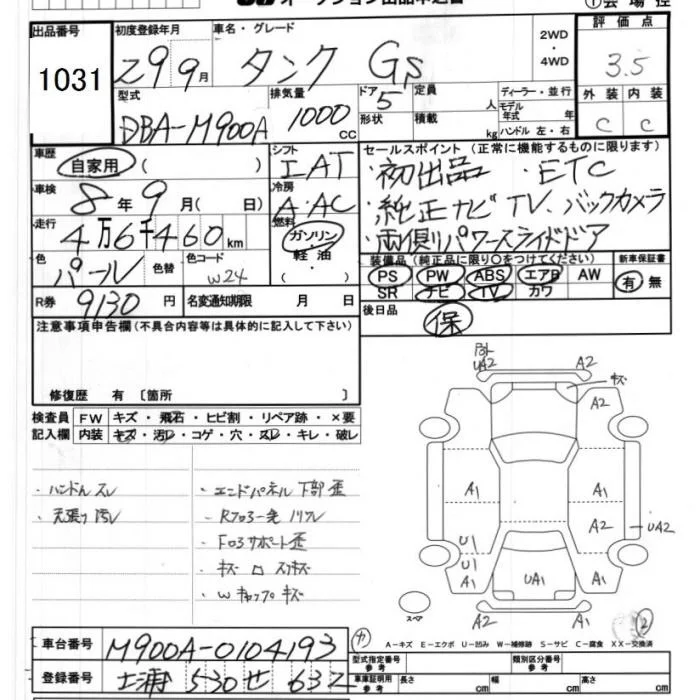 出品番号 初度登録年月 車名・グレード 2WD・4WD 評価点
1031 29 9月 タンク GS 3.5
型式 排気量 ドア 5 定員 人 ディーラー・並行 外装 内装
DBA-M900A 1000cc 形状 積載 kg モデル年式 年 C C
ハンドル 左・右
車歴 自家用 ( ) シフト IAT セールスポイント (正常に機能するものに限ります)
・初出品 ・ETC
車検 8年 9月 ( 日) 冷房 A・AC
・純正ナビ TV、バックカメラ
走行 4万6千460km 燃料 ガソリン・軽油・( )
・両側パワースライドドア
色 パール 色替 色コード W24
装備品 (純正品に限り○をつけてください) 新車保証書
PS PW ABS エアB AW 有・無
SR ナビ TV カワ
R券 9130円 名変通知期限 月 日
後日品 保
注意事項申告欄 (不具合内容等は具体的に記入して下さい)
修復歴 有 〔箇所 〕
検査員記入欄 FW キズ・飛石・ヒビ割・リペア跡・×要
内装 キズ・汚レ・コゲ・穴・スレ・キレ・破レ
・ハンドルスレ ・エンドパネル下部歪
・天張り汚レ
・Fロアサポート歪
・キズ
・Wキャップキズ
UA2 A2
キズ
A2
A1 A1
A2 UA2
U1
U1 A1 UA1 A1
スペア A2 A2
2
A-キズ E-エクボ U-凹み W-補修跡 S-サビ C-腐食 XX-交換済
車台番号 M900A-0104193
型式指定番号 参考 類別区分番号 参考
登録番号 土浦 530 せ 632
車庫証明用 参考 長さ cm 幅 cm 高さ cm